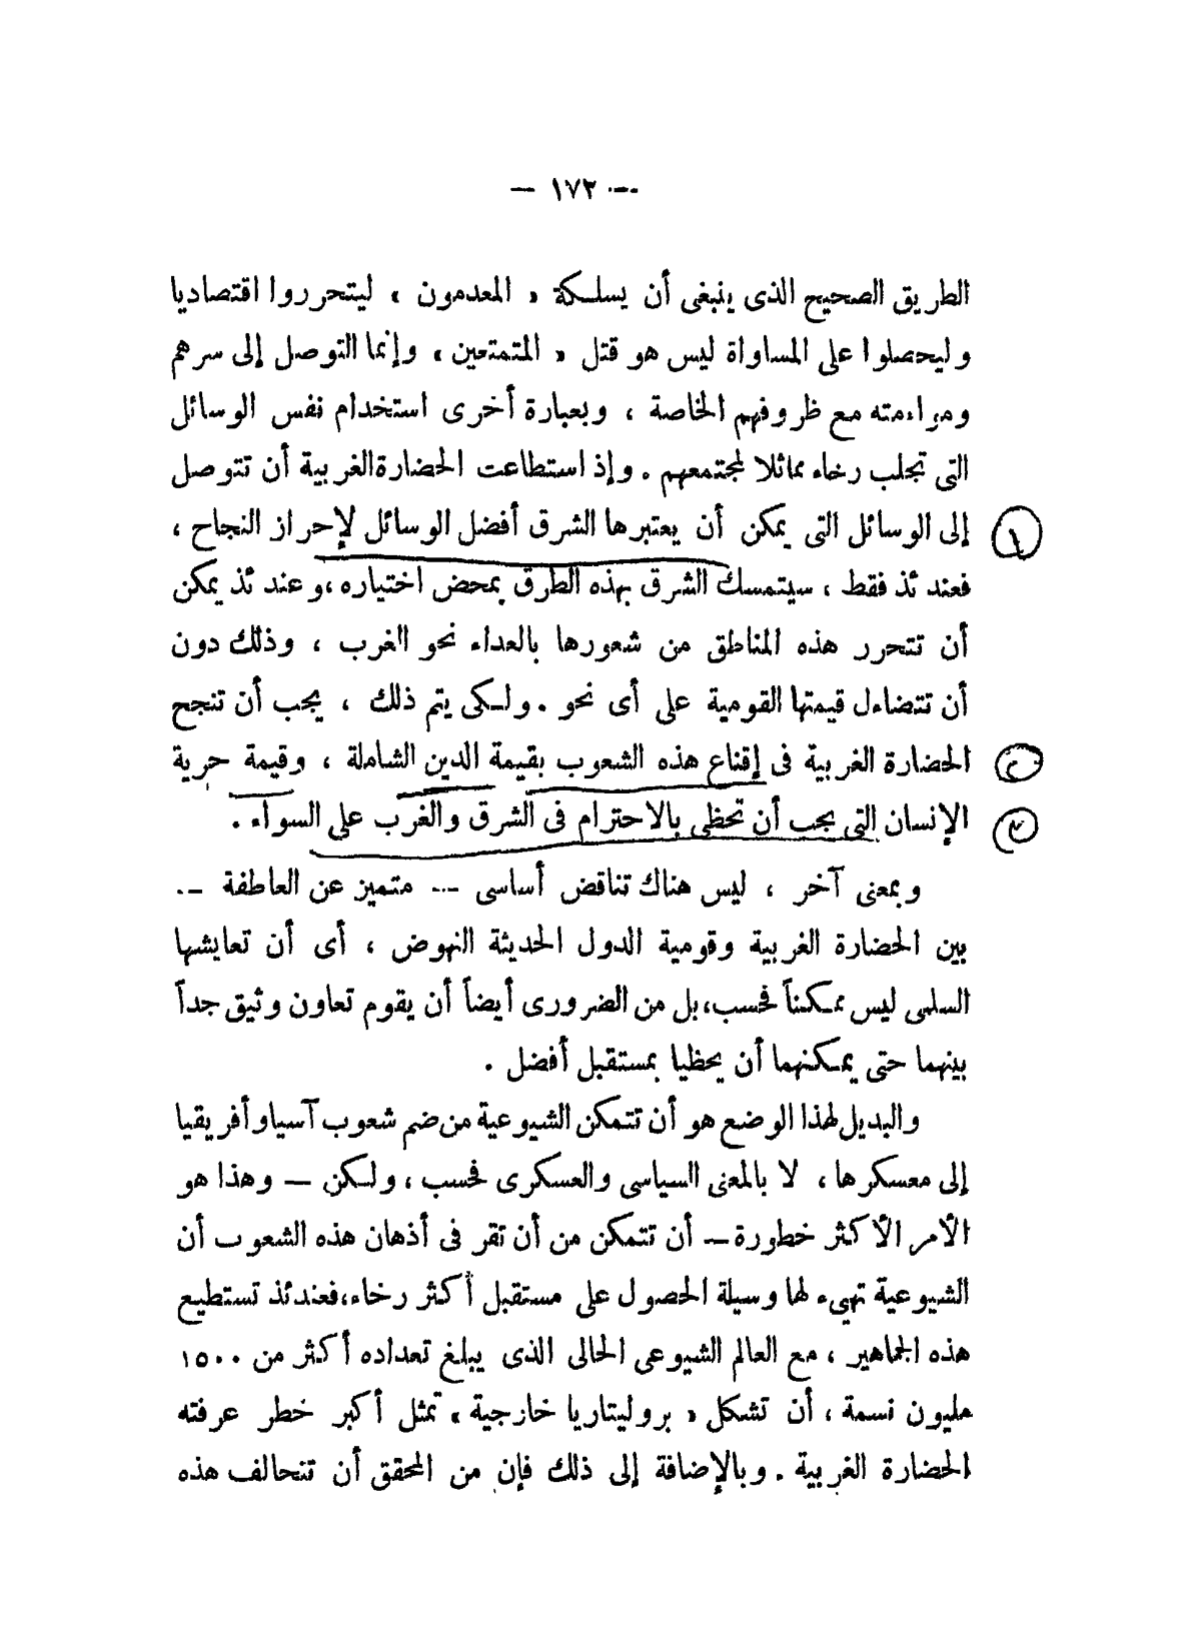 — ١٧٢ —
الطريق الصحيح الذى ينبغى أن يسلكة « المعدمون » ليتحرروا اقتصاديا
وليحصلوا على المساواة ليس هو قتل « المتمتعين » وإنما التوصل إلى سرهم
ومواءمته مع ظروفهم الخاصة ، وبعبارة أخرى استخدام نفس الوسائل
التى تجلب رخاء مماثلا لمجتمعهم . وإذ استطاعت الحضارة الغربية أن تتوصل
إلى الوسائل التى يمكن أن يعتبرها الشرق أفضل الوسائل لإحراز النجاح ،
فعندئذ فقط ، سيتمسك الشرق بهذه الطرق بمحض اختياره ، وعندئذ يمكن
أن تتحرر هذه المناطق من شعورها بالعداء نحو الغرب ، وذلك دون
أن تتضاءل قيمتها القومية على أى نحو . ولكى يتم ذلك ، يجب أن تنجح
الحضارة الغربية فى إقناع هذه الشعوب بقيمة الدين الشاملة ، وقيمة حرية
الإنسان التى يجب أن تحظى بالاحترام فى الشرق والغرب على السواء .
وبمعنى آخر ، ليس هناك تناقض أساسى — متميز عن العاطفة —
بين الحضارة الغربية وقومية الدول الحديثة النهوض ، أى أن تعايشها
السلمى ليس ممكناً فحسب، بل من الضرورى أيضاً أن يقوم تعاون وثيق جداً
بينهما حتى يمكنهما أن يحظيا بمستقبل أفضل .
والبديل لهذا الوضع هو أن تتمكن الشيوعية من ضم شعوب آسيا وأفريقيا
إلى معسكرها ، لا بالمعنى السياسى والعسكرى فحسب ، ولكن — وهذا هو
الأمر الأكثر خطورة — أن تتمكن من أن تقر فى أذهان هذه الشعوب أن
الشيوعية تهيء لها وسيلة الحصول على مستقبل أكثر رخاء، فعندئذ تستطيع
هذه الجماهير ، مع العالم الشيوعى الحالى الذى يبلغ تعداده أكثر من ١٥٠٠
مليون نسمة ، أن تشكل « بروليتاريا خارجية » تمثل أكبر خطر عرفته
الحضارة الغربية . وبالإضافة إلى ذلك فإن من المحقق أن تتحالف هذه